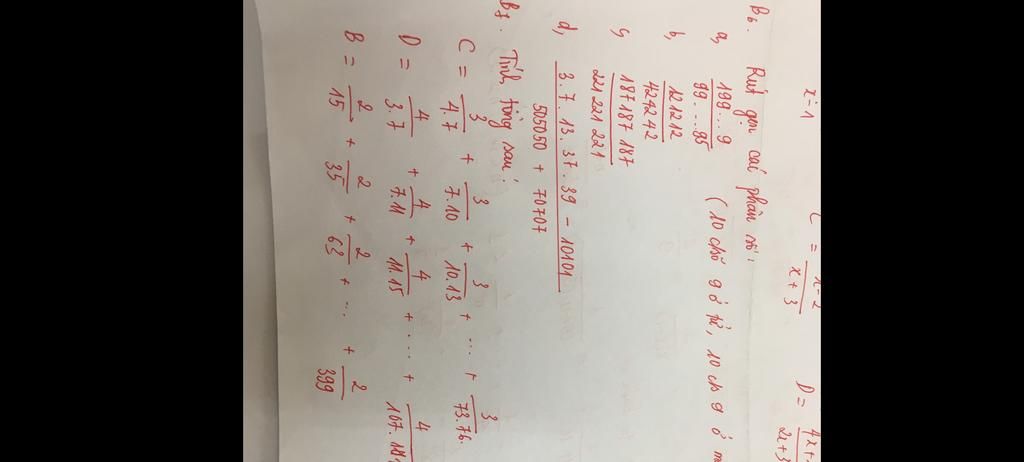 x-1 C = x-2/x+3 D =
B6. Rút gọn các phân số:
a, 199...9/99...95 (10 chữ số 9 ở tử, 10 chữ số 9 ở
b, 121212/424242
c, 187187187/221221221
d, 3.7.13.37.39 - 10101/505050 + 70707
B7. Tính tổng sau:
C = 3/4.7 + 3/7.10 + 3/10.13 + ... + 3/73.76.
D = 4/3.7 + 4/7.11 + 4/11.15 + .... +
B = 2/15 + 2/35 + 2/63 + ... + 2/399